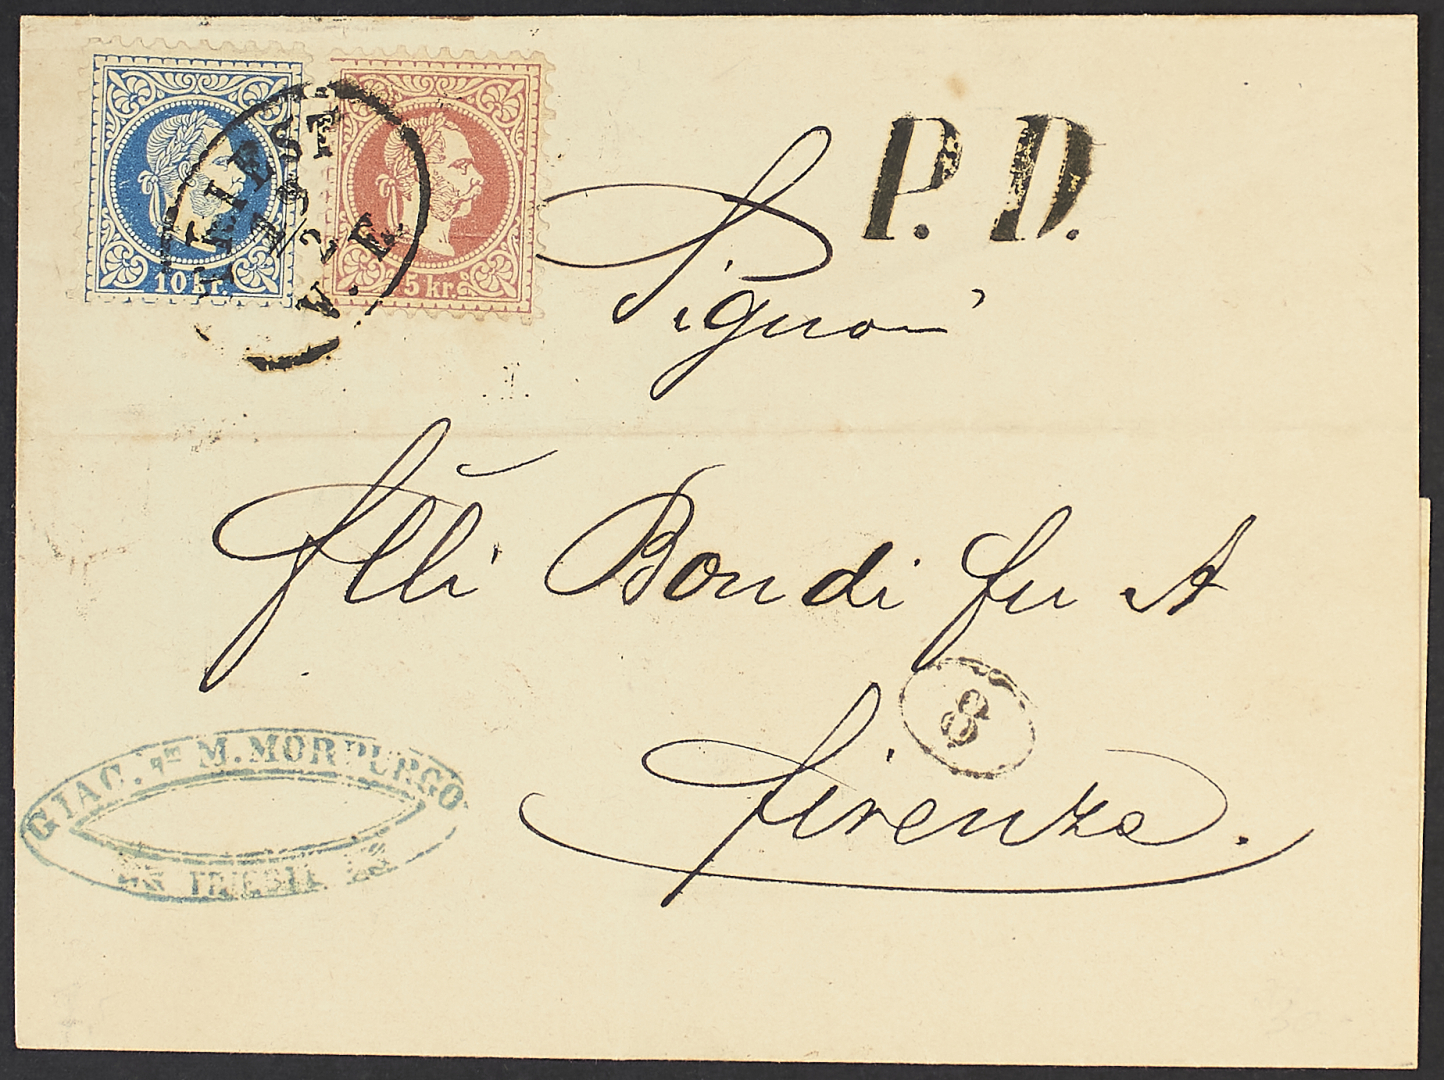 10 kr.
5 kr.
TRIEST
19/2
V. E.
P. D.
Signori
Flli Bondi fu A
Firenze
8
GIAC. M. MORPURGO
TRIESTE